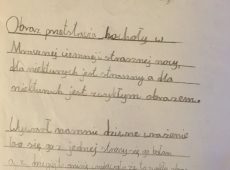 Obraz przedstawia kachoły w
Mrocznej ciemnej i strasznej nocy,
dla niektórych jest straszny a dla
niektórych jest zwykłym obrazem.
Wywarł na mnie dziwne wrażenie
bo się go z jednej strony się boję
a z drugiej